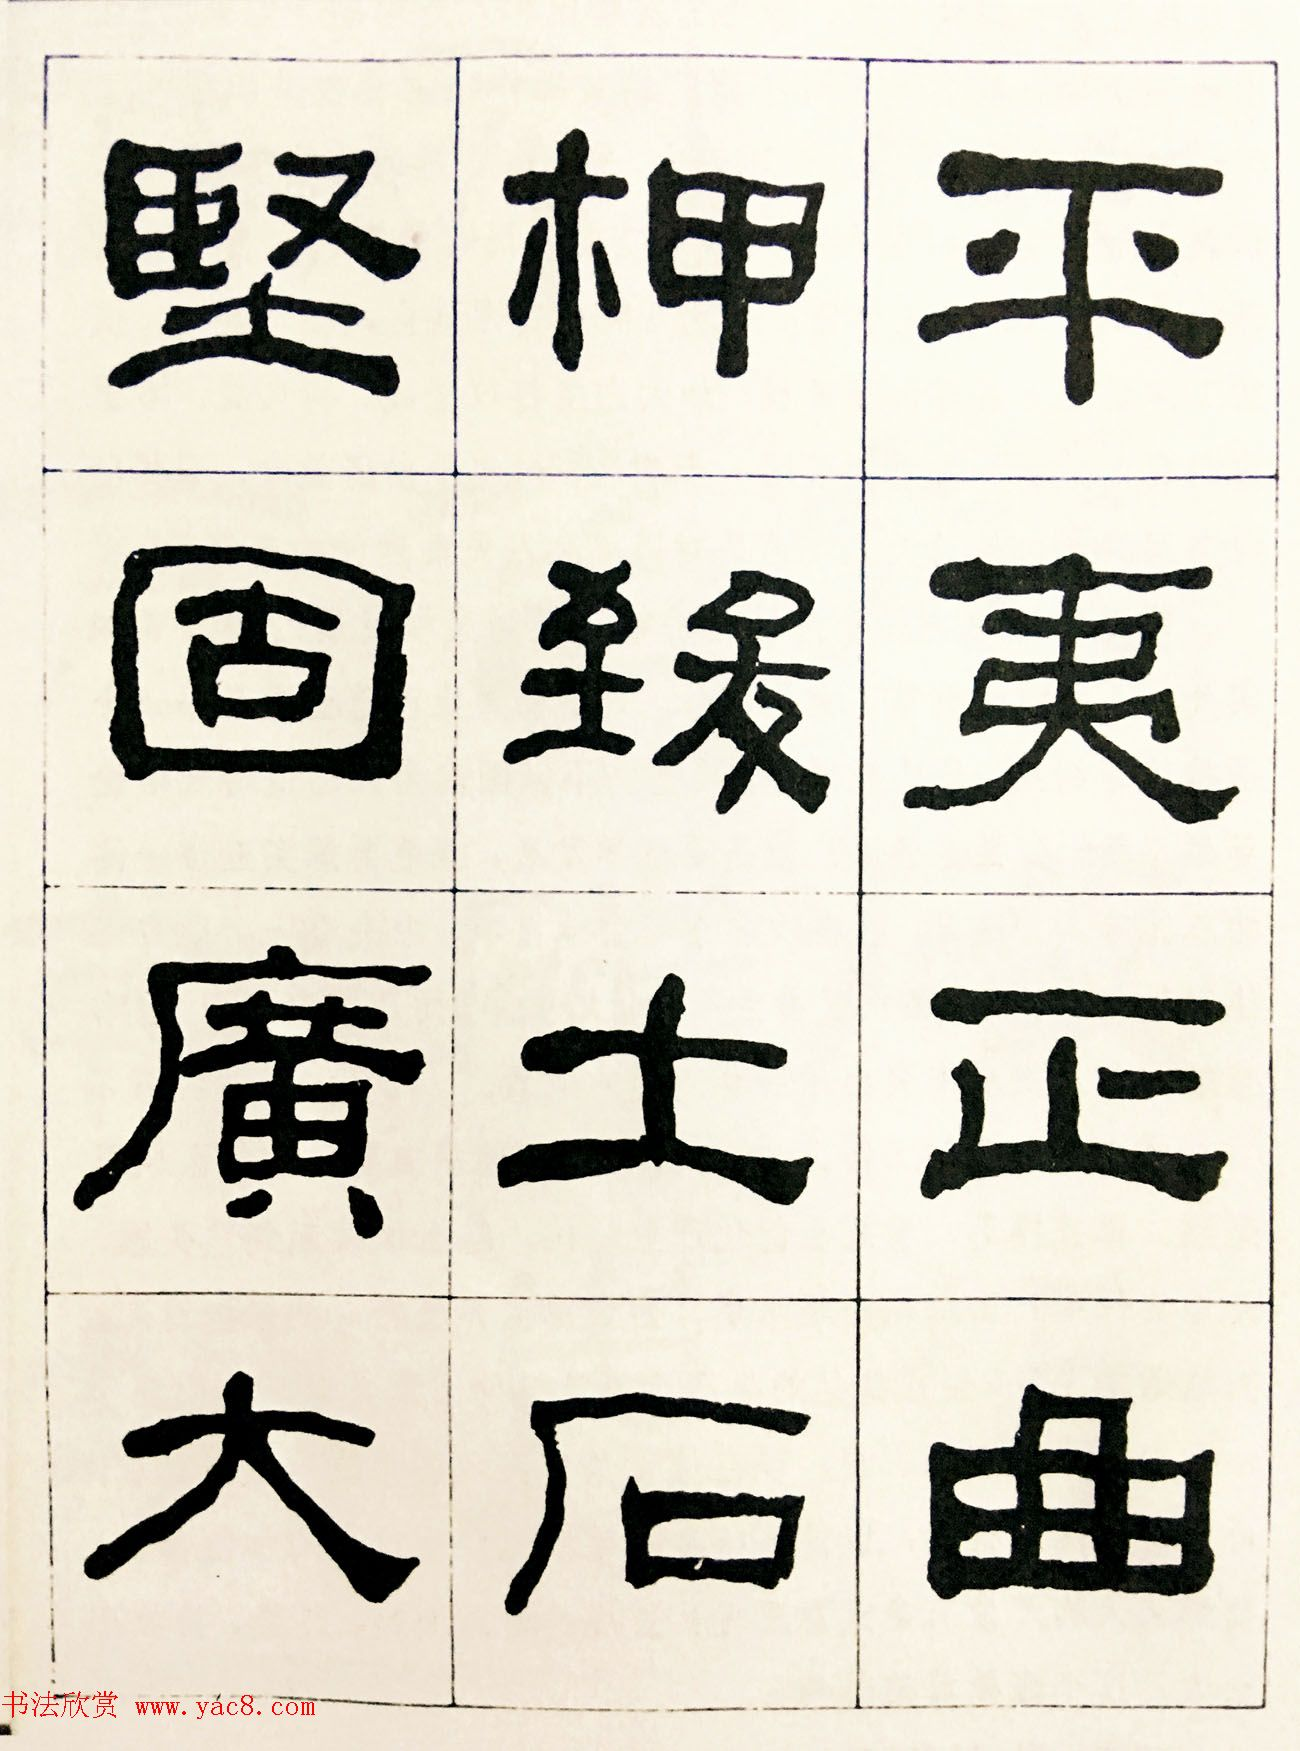 平夷正曲
柙致土石
堅固廣大
书法欣赏 www.yac8.com